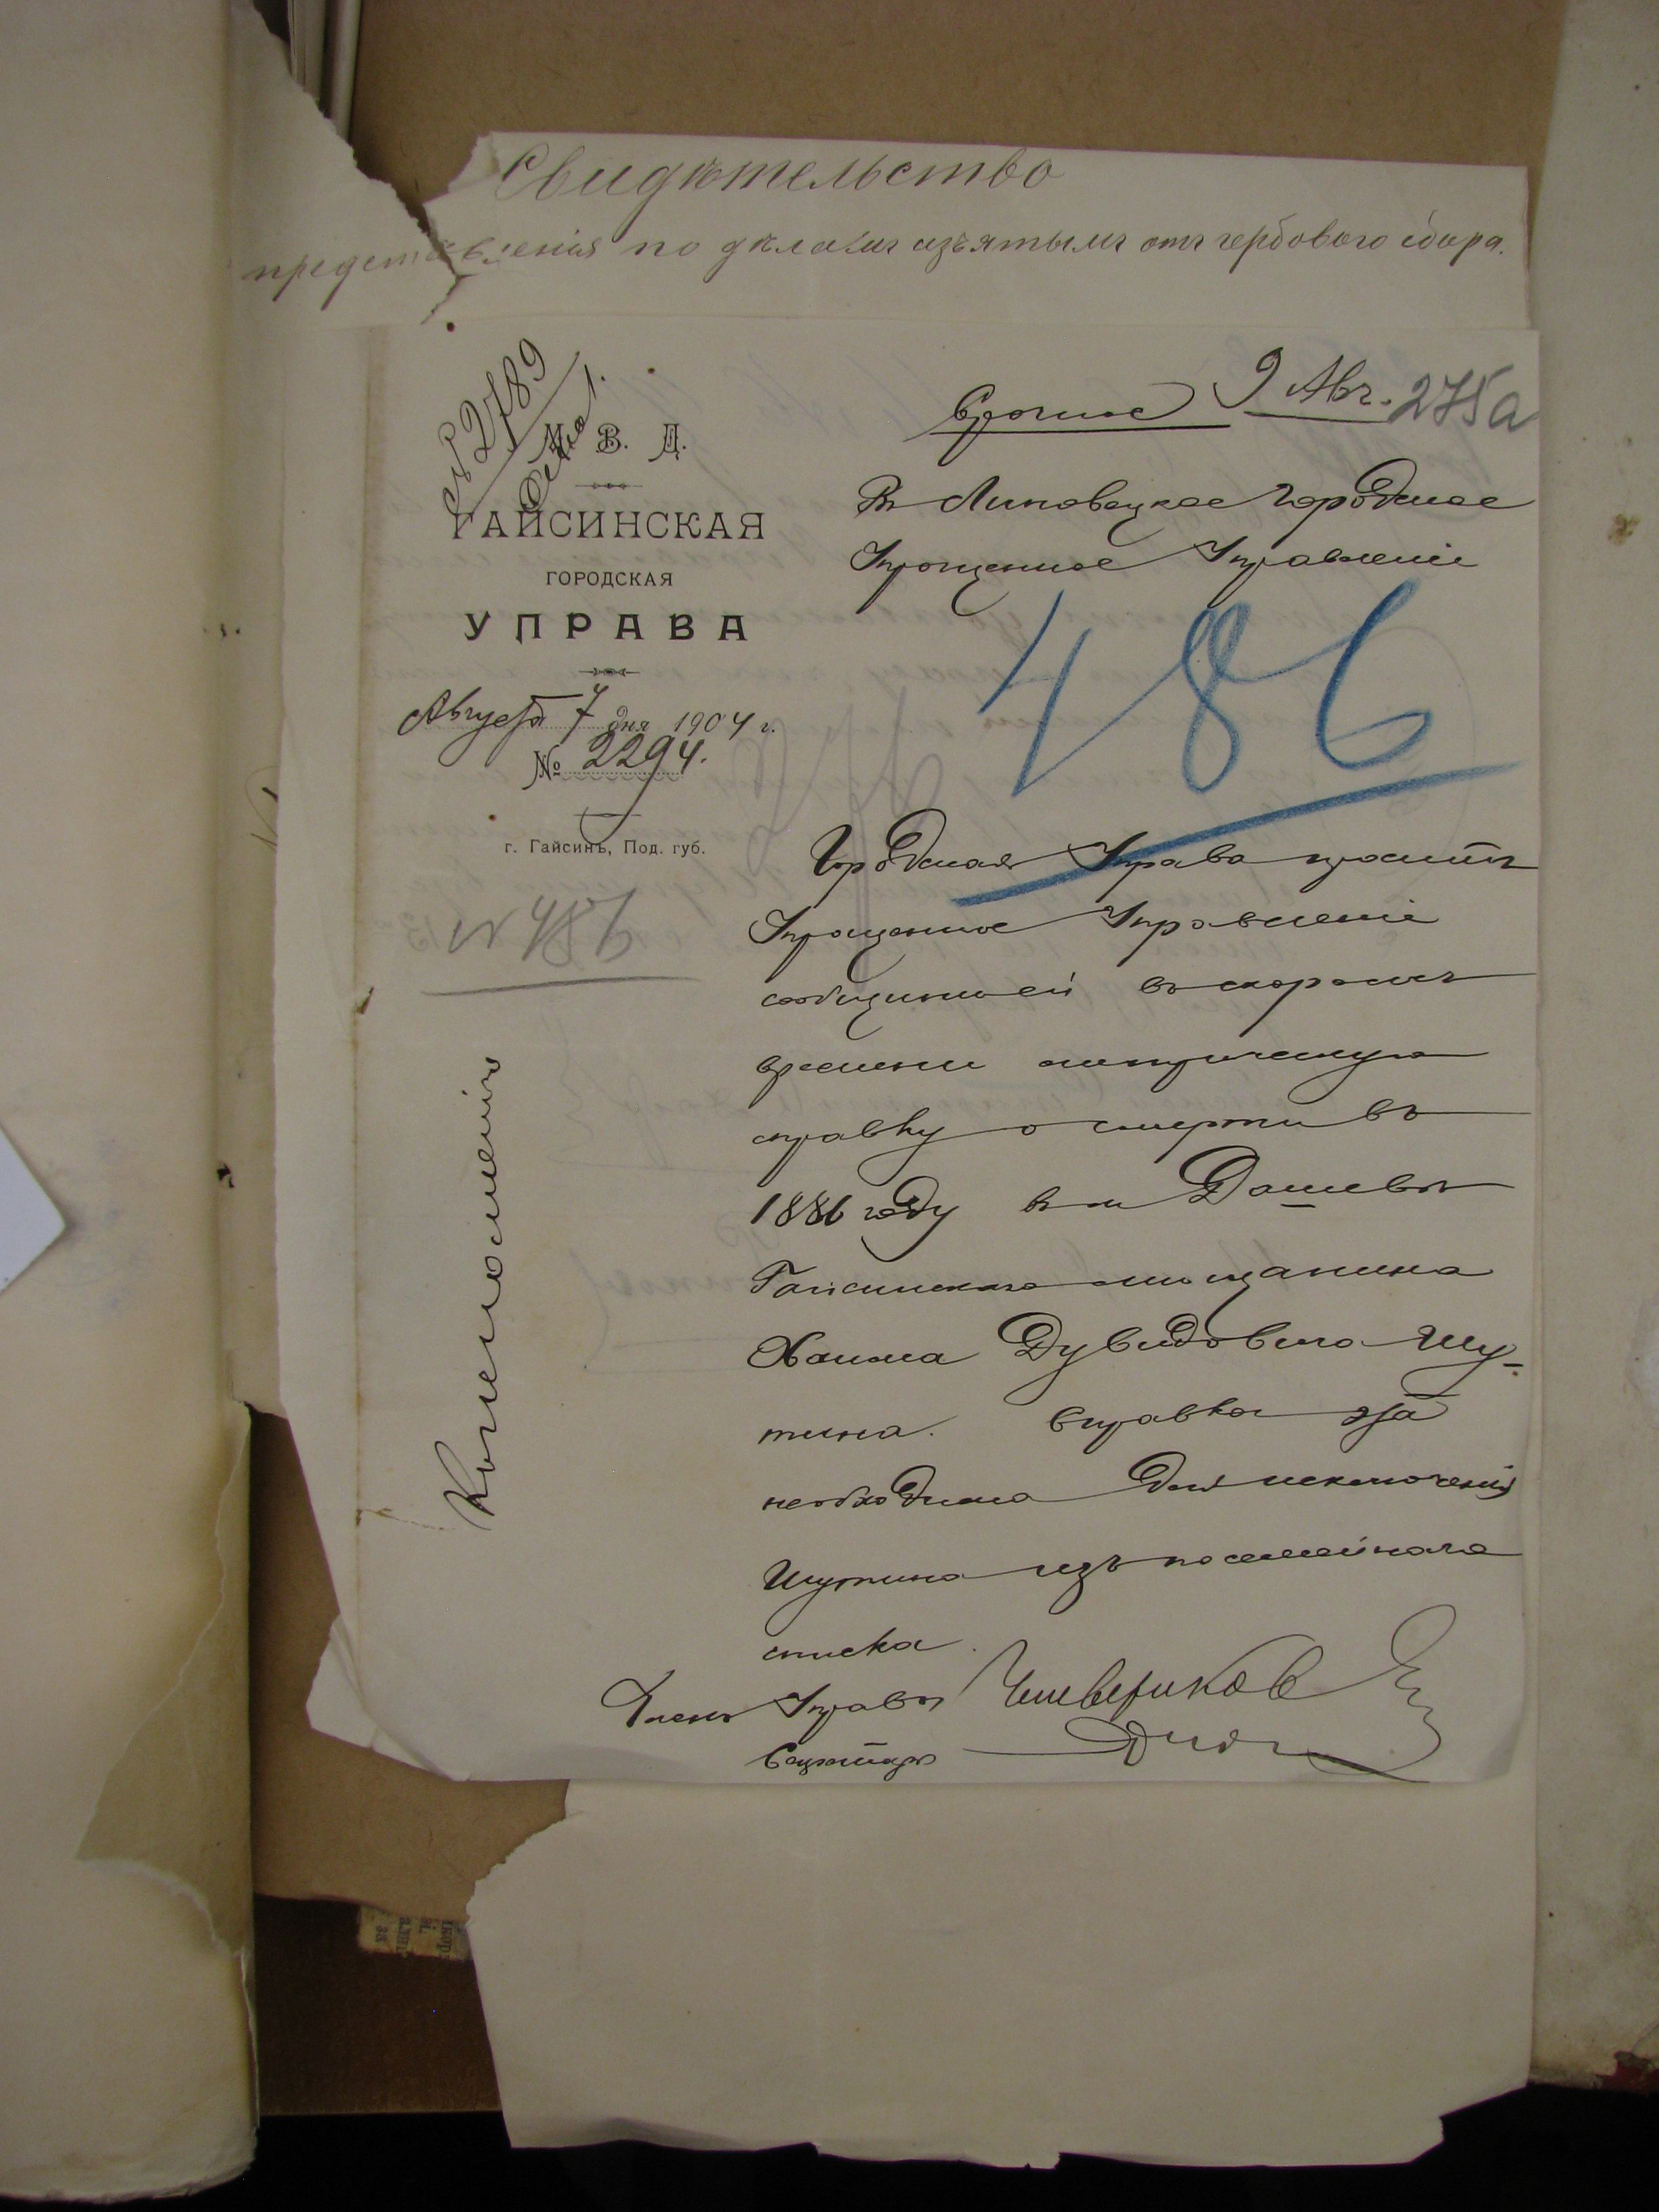 Свидѣтельство
представленія по дѣламъ изъятымъ отъ гербового сбора.
№ 2789
М. В. Д.
ГАЙСИНСКАЯ
ГОРОДСКАЯ
УПРАВА
Августа 7 дня 1904 г.
№ 2294.
г. Гайсинъ, Под. губ.
N 486
Срочное 9 Авг. 275а
Въ Липовецкое Городское
Упрощенное Управленіе
486
Городская Управа проситъ
Упрощенное Управленіе
сообщить ей въ скоромъ
времени метрическую
справку о смерти въ
1886 году въ м Дашевѣ
Гайсинского мѣщанина
Хаима Дувидовича Шу-
тина. Справка эта
необходима для исключенія
Шутина изъ посемейнаго
списка.
Членъ Управы
Секретарь